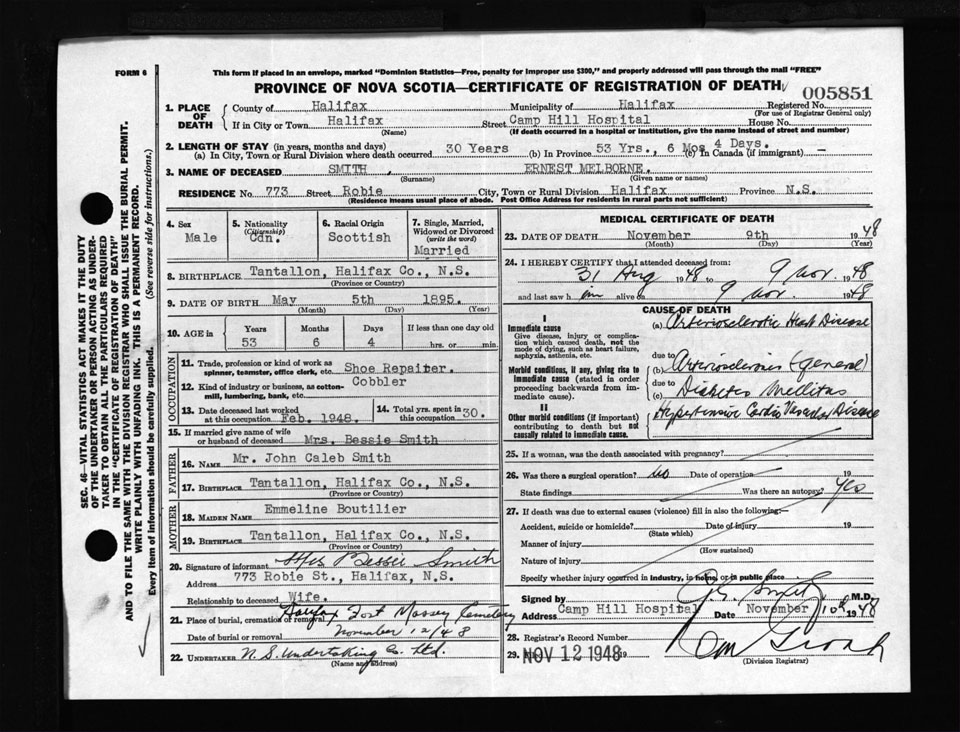 FORM 6
This form if placed in an envelope, marked "Dominion Statistics—Free, penalty for improper use $300," and properly addressed will pass through the mail "FREE"
PROVINCE OF NOVA SCOTIA—CERTIFICATE OF REGISTRATION OF DEATH
005851
SEC. 46—VITAL STATISTICS ACT MAKES IT THE DUTY
OF THE UNDERTAKER OR PERSON ACTING AS UNDER-
TAKER TO OBTAIN ALL THE PARTICULARS REQUIRED
IN THE "CERTIFICATE OF REGISTRATION OF DEATH"
AND TO FILE THE SAME WITH THE DIVISION REGISTRAR WHO SHALL ISSUE THE BURIAL PERMIT.
WRITE PLAINLY WITH UNFADING INK. THIS IS A PERMANENT RECORD.
Every item of information should be carefully supplied. (See reverse side for instructions.)
1. PLACE OF DEATH County of Halifax Municipality of Halifax Registered No.
(For use of Registrar General only)
If in City or Town Halifax Street Camp Hill Hospital House No.
(Name) (If death occurred in a hospital or institution, give the name instead of street and number)
2. LENGTH OF STAY (in years, months and days)
(a) In City, Town or Rural Division where death occurred 30 Years (b) In Province 53 Yrs., 6 Mos 4 Days. (c) In Canada (if immigrant) —
3. NAME OF DECEASED SMITH, ERNEST MELBORNE.
(Surname) (Given name or names)
RESIDENCE No. 773 Street Robie City, Town or Rural Division Halifax Province N.S.
(Residence means usual place of abode. Post Office Address for residents in rural parts not sufficient)
4. Sex Male
5. Nationality (Citizenship) Cdn.
6. Racial Origin Scottish
7. Single, Married, Widowed or Divorced (write the word) Married
8. BIRTHPLACE Tantallon, Halifax Co., N.S.
(Province or Country)
9. DATE OF BIRTH May 5th 1895.
(Month) (Day) (Year)
10. AGE in Years 53 Months 6 Days 4 If less than one day old hrs. or min.
OCCUPATION
11. Trade, profession or kind of work as spinner, teamster, office clerk, etc. Shoe Repaiter.
12. Kind of industry or business, as cotton-mill, lumbering, bank, etc. Cobbler
13. Date deceased last worked at this occupation Feb. 1948.
14. Total yrs. spent in this occupation 30.
15. If married give name of wife or husband of deceased Mrs. Bessie Smith
FATHER
16. NAME Mr. John Caleb Smith
17. BIRTHPLACE Tantallon, Halifax Co., N.S.
(Province or Country)
MOTHER
18. MAIDEN NAME Emmeline Boutilier
19. BIRTHPLACE Tantallon, Halifax Co., N.S.
(Province or Country)
20. Signature of informant Mrs. Bessie Smith
Address 773 Robie St., Halifax, N.S.
Relationship to deceased Wife.
21. Place of burial, cremation or removal Halifax Fort Massey Cemetery
Date of burial or removal November 12/48
22. UNDERTAKER N.S. Undertaking Co. Ltd.
(Name and address)
MEDICAL CERTIFICATE OF DEATH
23. DATE OF DEATH November 9th 1948
(Month) (Day) (Year)
24. I HEREBY CERTIFY that I attended deceased from:
31 Aug 1948 to 9 Nov. 1948
and last saw him alive on 9 Nov. 1948
CAUSE OF DEATH
I
Immediate cause
Give disease, injury or complication which caused death, not the mode of dying, such as heart failure, asphyxia, asthenia, etc.
(a) Arteriosclerotic Heart Disease
Morbid conditions, if any, giving rise to immediate cause (stated in order proceeding backwards from immediate cause).
due to
(b) Arteriosclerosis (general)
due to
(c) Diabetes Mellitus
II
Other morbid conditions (if important) contributing to death but not causally related to immediate cause.
Hypertensive Cardio Vascular Disease
25. If a woman, was the death associated with pregnancy?
26. Was there a surgical operation? no Date of operation 19
State findings Was there an autopsy? Yes
27. If death was due to external causes (violence) fill in also the following:—
Accident, suicide or homicide? Date of injury 19
(State which)
Manner of injury
(How sustained)
Nature of injury
Specify whether injury occurred in industry, in home, or in public place
Signed by M.D.
Address Camp Hill Hospital Date November 10th 1948
28. Registrar's Record Number
29. NOV 12 1948 19
(Division Registrar)